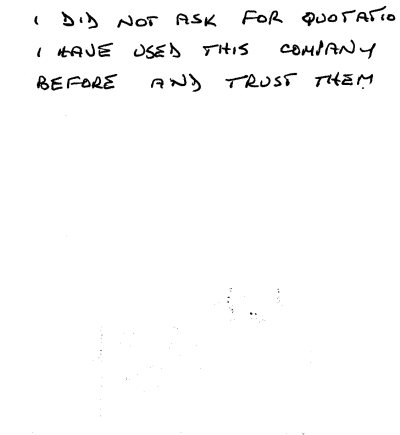 I DID NOT ASK FOR QUOTATIO
I HAVE USED THIS COMPANY
BEFORE AND TRUST THEM